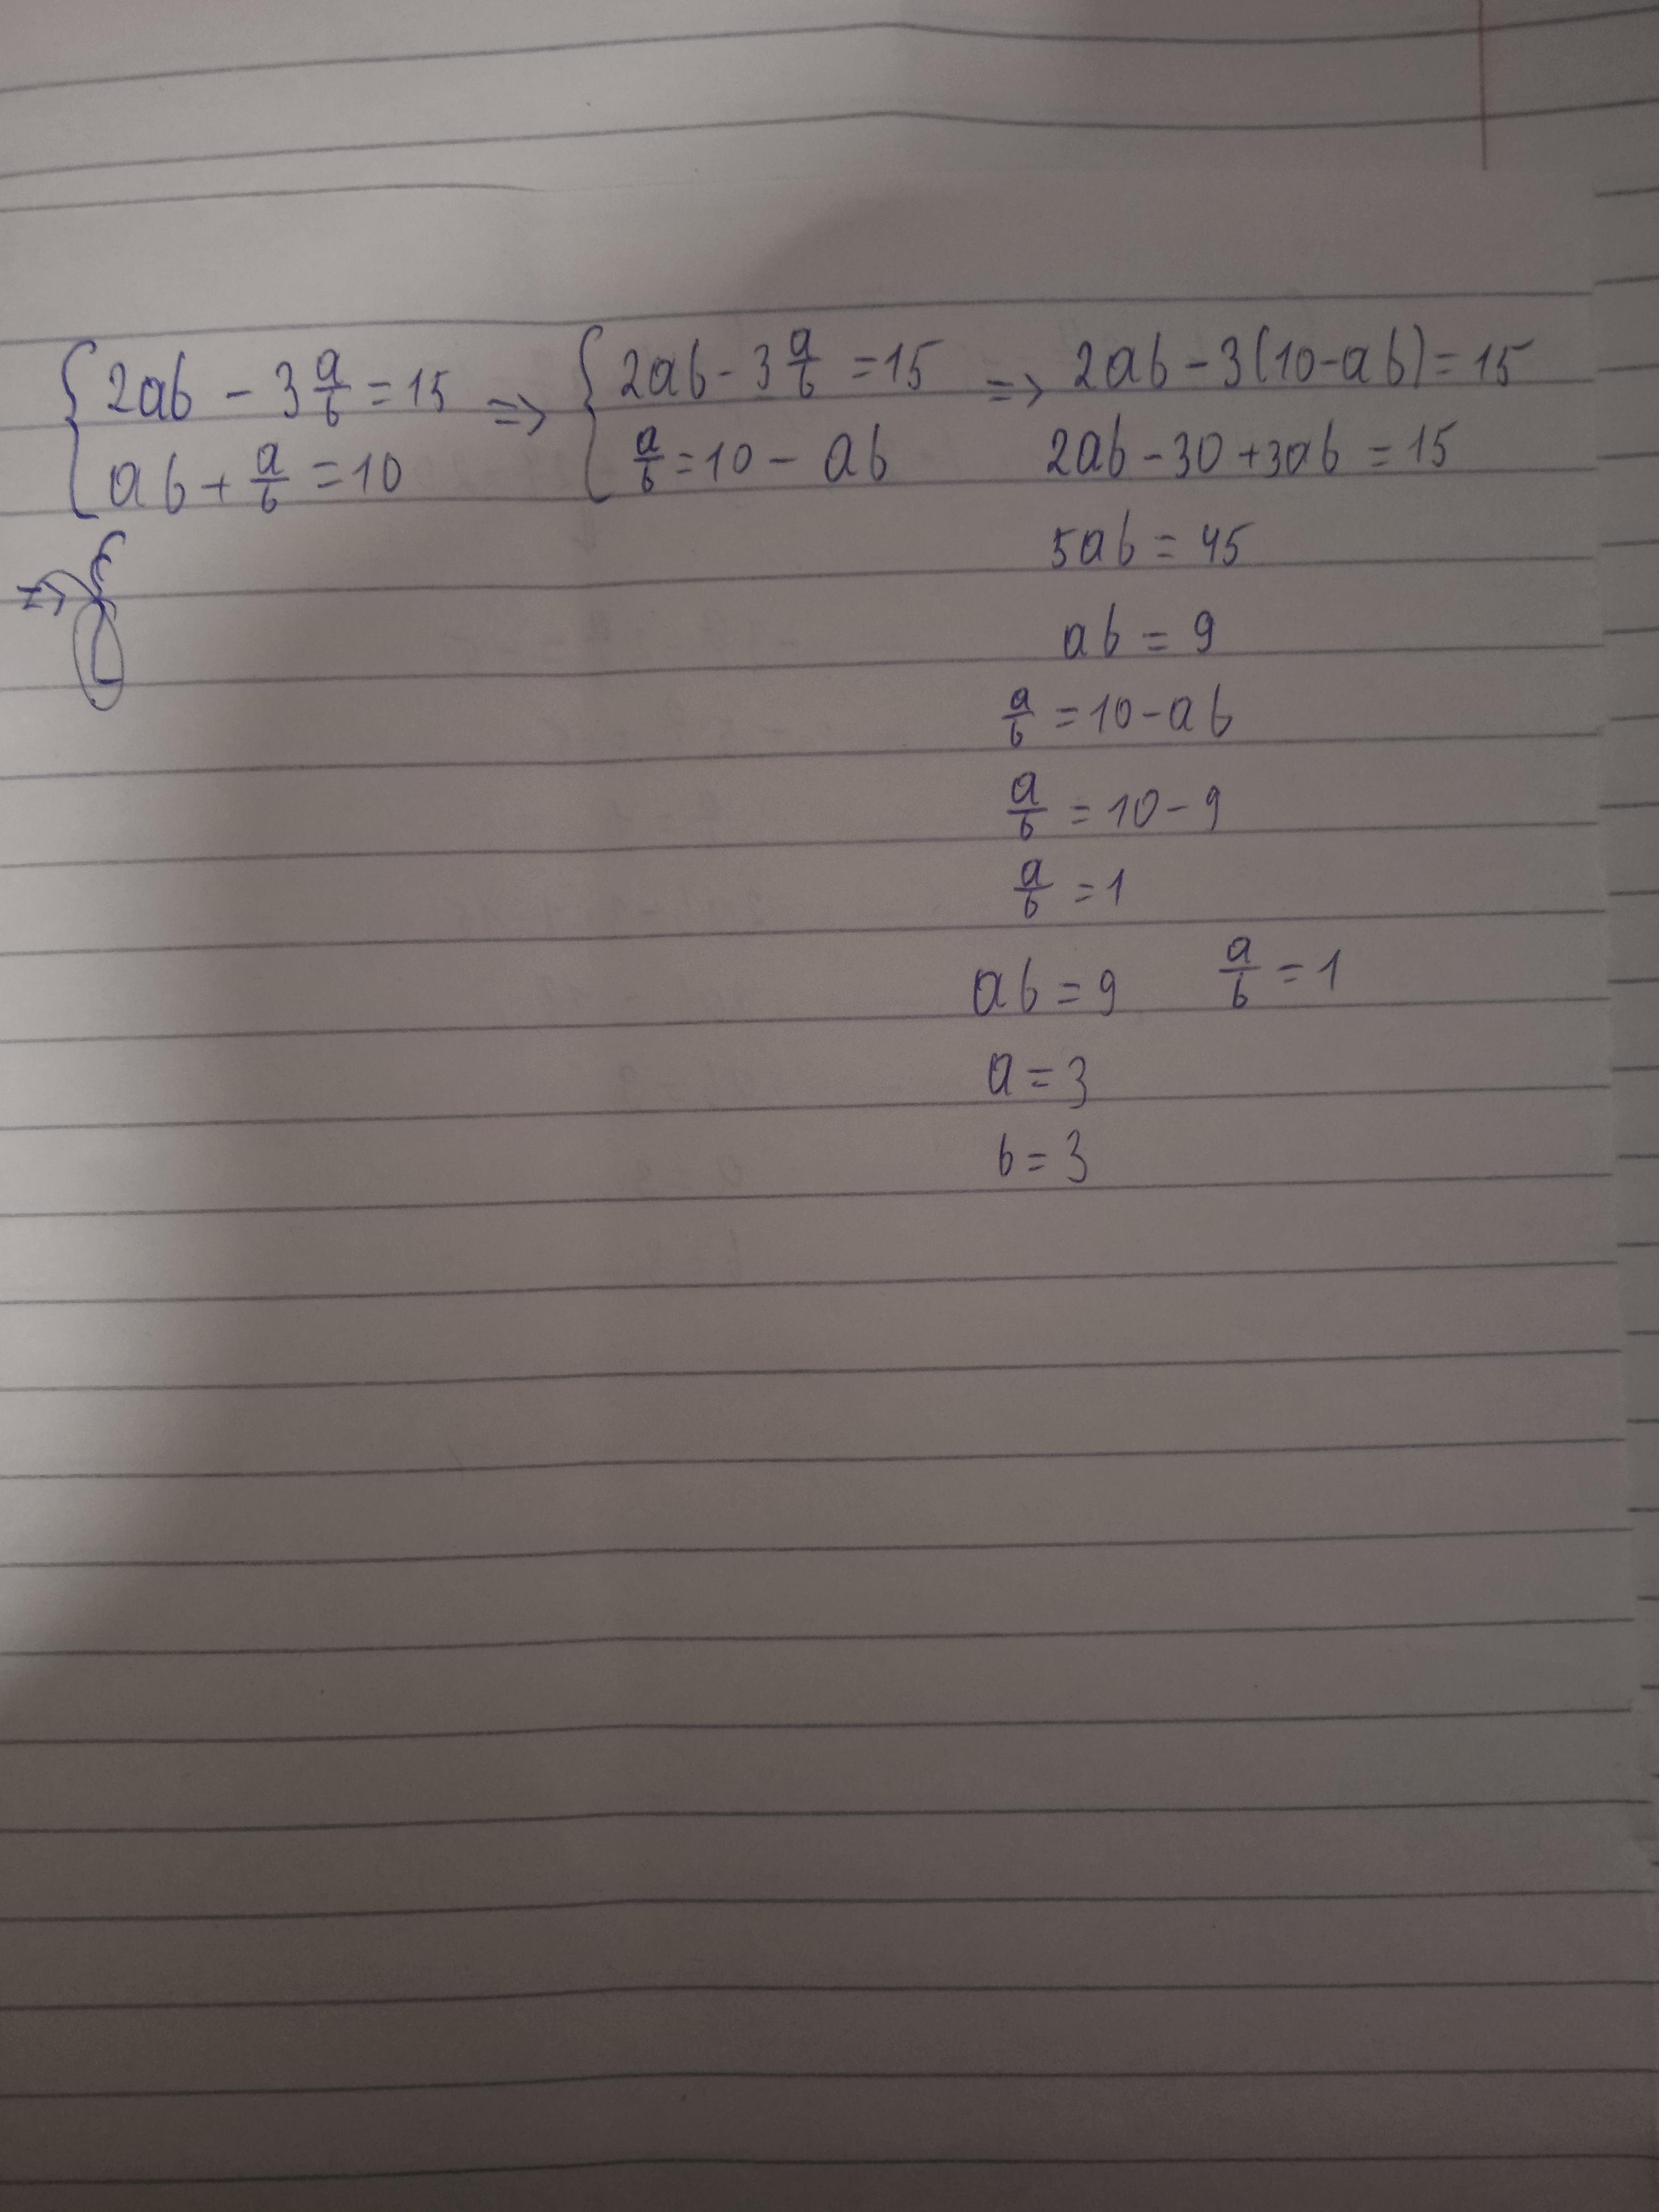 { 2ab - 3 a/b = 15 => { 2ab - 3 a/b = 15 => 2ab - 3(10-ab) = 15
ab + a/b = 10 a/b = 10 - ab 2ab - 30 + 3ab = 15
=> {
5ab = 45
ab = 9
a/b = 10 - ab
a/b = 10 - 9
a/b = 1
ab = 9 a/b = 1
a = 3
b = 3